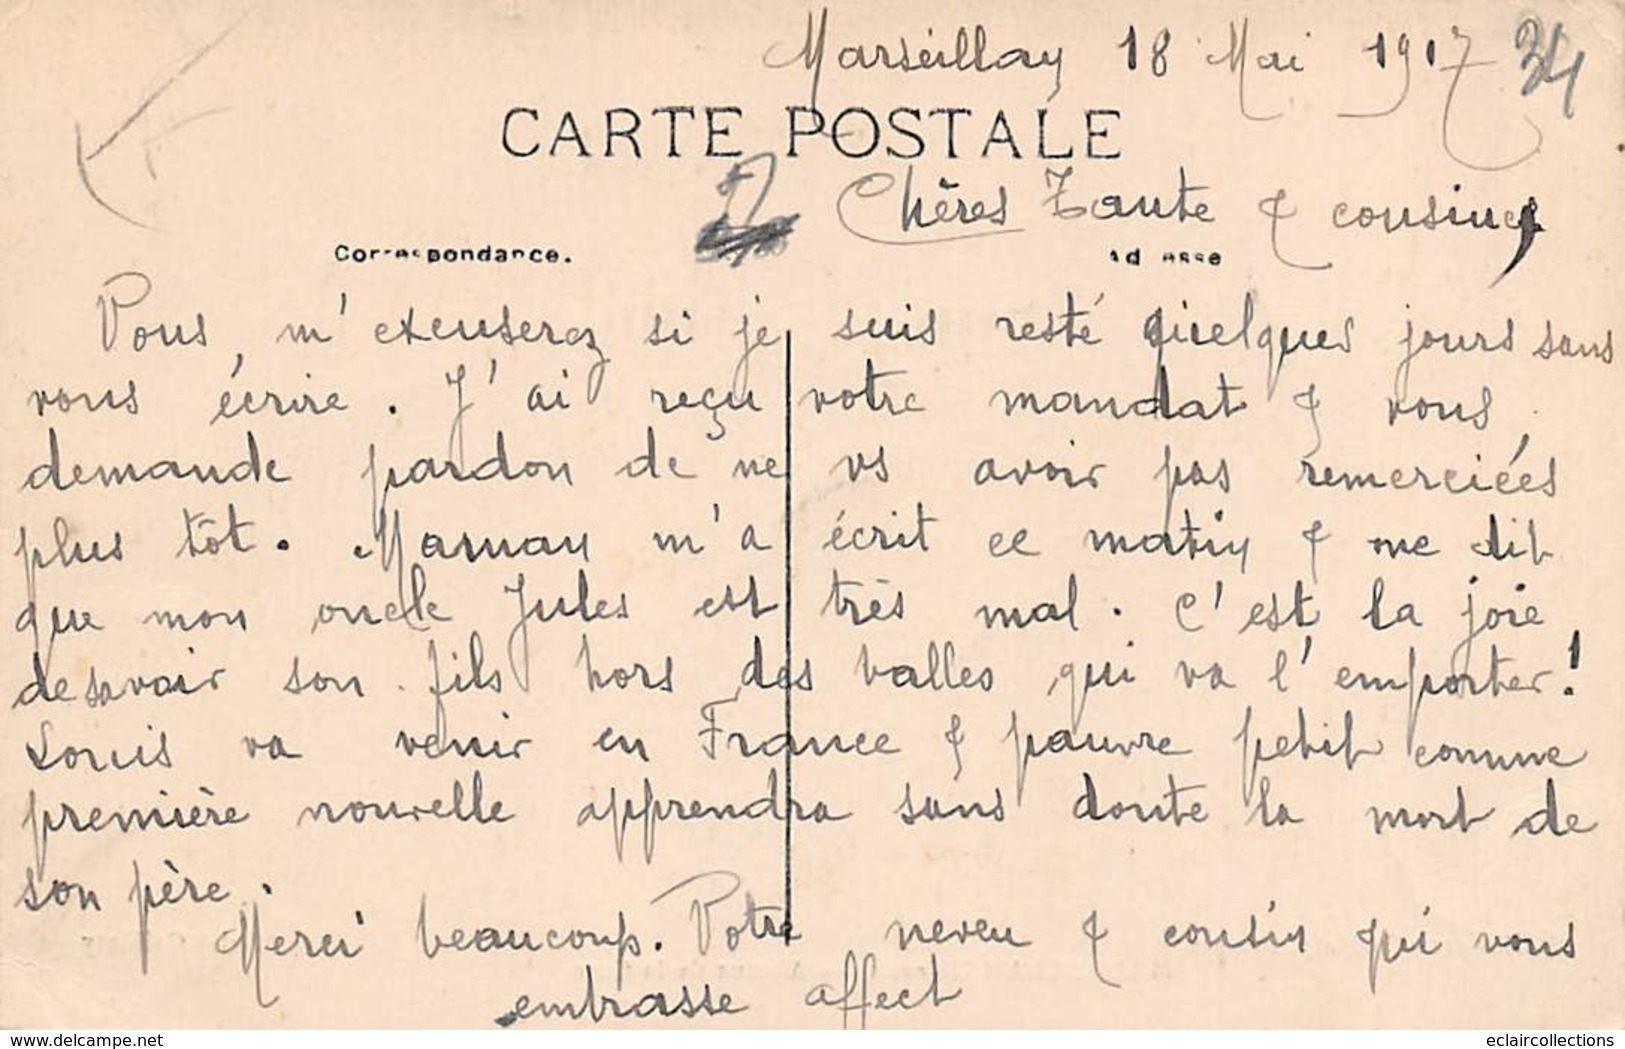 Marseillan 18 Mai 1917 34
CARTE POSTALE
Chères Tante & cousines
Correspondance.
Vous m'excuserez si je suis resté quelques jours sans
vous écrire. J'ai reçu votre mandat & vous
demande pardon de ne vs avoir pas remerciées
plus tôt. Maman m'a écrit ce matin & me dit
que mon oncle Jules est très mal. C'est la joie
de savoir son fils hors des balles qui va l'emporter!
Louis va venir en France & pauvre petit comme
première nouvelle apprendra sans doute la mort de
son père.
Merci beaucoup. Votre neveu & cousin qui vous
embrasse affect
www.delcampe.net eclaircollections